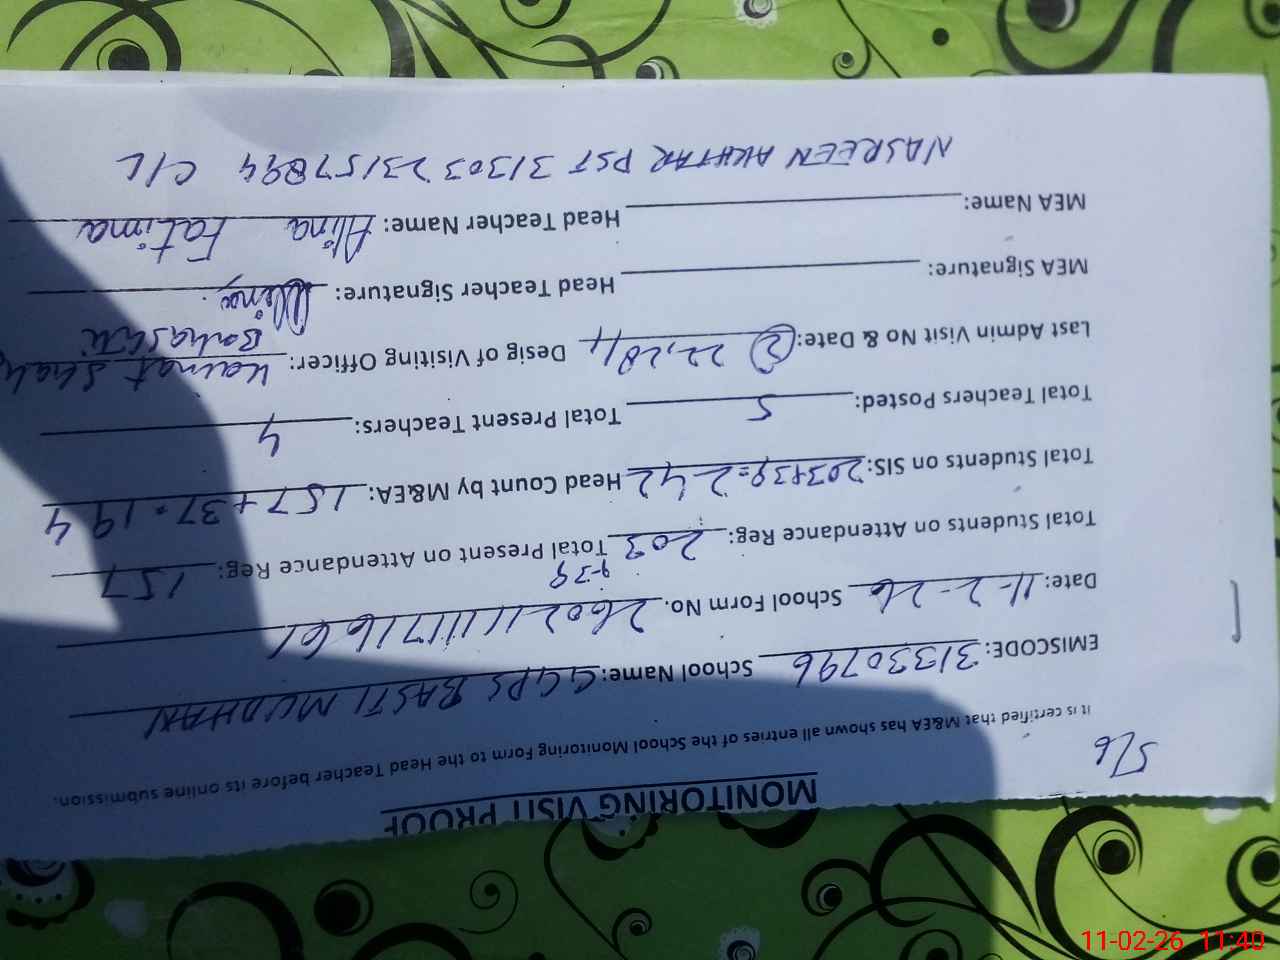 MONITORING VISIT PROOF
It is certified that M&EA has shown all entries of the School Monitoring Form to the Head Teacher before its online submission.
5/6
EMISCODE: 31330796 School Name: GGPS BASTI MUDHAN
Date: 11-2-26 School Form No. 260211111716 61
+39
Total Students on Attendance Reg: 203 Total Present on Attendance Reg: 157
Total Students on SIS: 203+39=242 Head Count by M&EA: 157+37=194
Total Teachers Posted: 5 Total Present Teachers: 4
Last Admin Visit No & Date: 2 22,28/1 Desig of Visiting Officer: Kainat Shah
MEA Signature: Head Teacher Signature: Alina
MEA Name: Head Teacher Name: Alina Fatima
NASREEN AKHTAR PST 31303 23157894 C/L
11-02-26 11:40